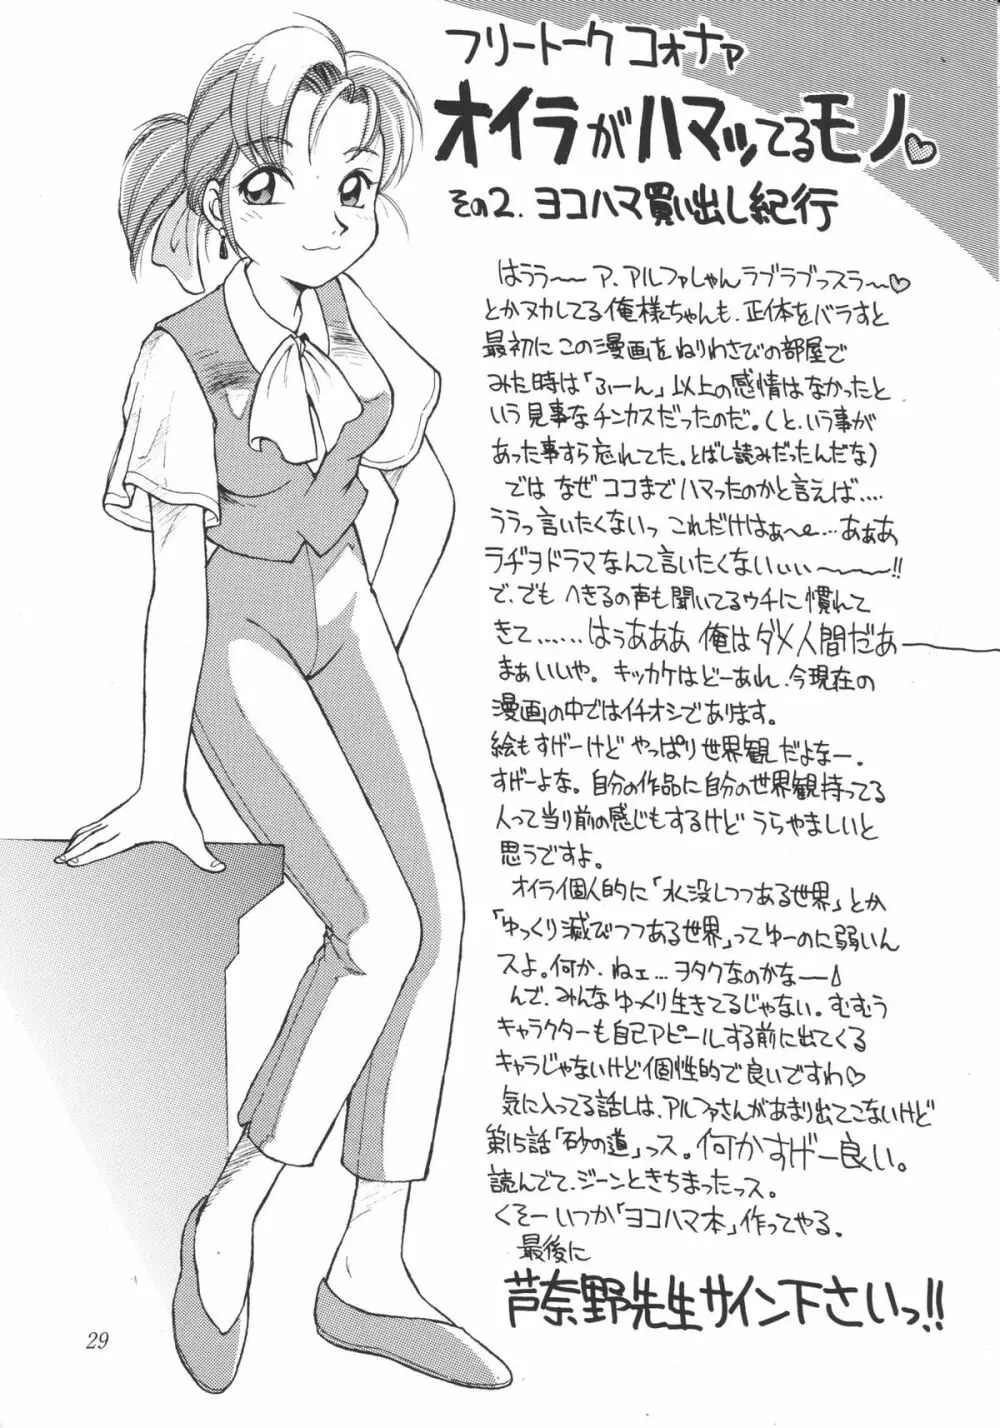 フリートーク コォナァ
オイラがハマッてるモノ♡
その2. ヨコハマ買い出し紀行
はううー〜ア、アルファしゃんラブラブっスラ〜♡
とかヌカしてる俺様ちゃんも、正体をバラすと
最初にこの漫画をねりわさびの部屋で
みた時は「ふーん」以上の感情はなかったと
いう見事なチンカスだったのだ。(と、いう事が
あった事すら忘れてた。とばし読みだったんだな)
では なぜ ココまでハマったのかと言えば‥‥
ううっ言いたくないっ これだけはぁ〜‥‥あぁあ
ラヂヲドラマなんて言いたくないぃぃ〜〜〜!!
で、でも へきるの声も聞いてるウチに慣れて
きて‥‥‥はぅあああ 俺はダメ人間だあ——
まぁいいや。キッカケはどーあれ、今現在の
漫画の中ではイチオシであります。
絵もすげーけど やっぱり世界観だよなー.
すげーよな。自分の作品に自分の世界観持ってる
人って当り前の感じもするけど うらやましいと
思うですよ。
オイラ個人的に「水没しつつある世界」とか
「ゆっくり滅びつつある世界」ってゆーのに弱いん
スよ。何か、ねェ…ヲタクなのかなー
んで、みんなゆメリ生きてるじゃない。むむう
キャラクターも自己アピールする前に出てくる
キャラじゃないけど個性的で良いですわ♡
気に入ってる話しは、アルファさんがあまり出てこないけど
第15話「砂の道」っス。何かすげー良い。
読んでて、ジーンときちまったっス。
くそー いつか「ヨコハマ本」作ってやる.
最後に
芦奈野先生サイン下さいっ!!
29